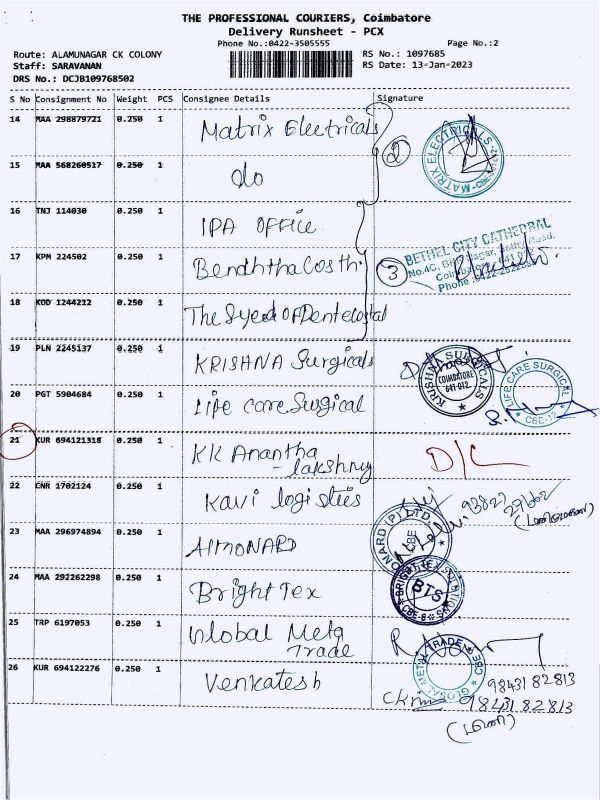 THE PROFESSIONAL COURIERS, Coimbatore
Delivery Runsheet - PCX
Phone No.:0422-3505555 Page No.:2
Route: ALAMUNAGAR CK COLONY RS No.: 1097685
Staff: SARAVANAN RS Date: 13-Jan-2023
DRS No.: DCJB109768502
S No Consignment No Weight PCS Consignee Details Signature
14 MAA 298879721 0.250 1 Matrix Electricals
MATRIX ELECTRICALS
2
15 MAA 568260517 0.250 1 do
16 TNJ 114030 0.250 1 IPA OFFICE
17 KPM 224502 0.250 1
3 BETHEL CITY CATHEDRAL
18 KOD 1244212 0.250 1
19 PLN 2245137 0.250 1 KRISHNA Surgicals
KRISHNA SURGICALS COIMBATORE 641-012.
20 PGT 5904684 0.250 1 Life care Surgical
LIFE CARE SURGICAL CBE-12
21 KUR 694121318 0.250 1 KK Anantha
- lakshmy
D/L
22 CNR 1702124 0.250 1 Kavi logisties
93827
27662
23 MAA 296974894 0.250 1 AIMONARD
CBE
24 MAA 292262298 0.250 1 Bright Tex
BTS
25 TRP 6197053 0.250 1 Global Meta
Trade
GLOBAL METAL TRADE
26 KUR 694122276 0.250 1 Venkatesh
98431 82813
98431 82813
(மணி)